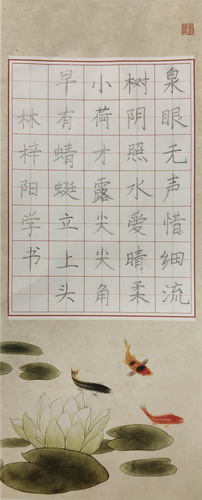 泉眼无声惜细流
树阴照水爱晴柔
小荷才露尖尖角
早有蜻蜓立上头
林梓阳学书